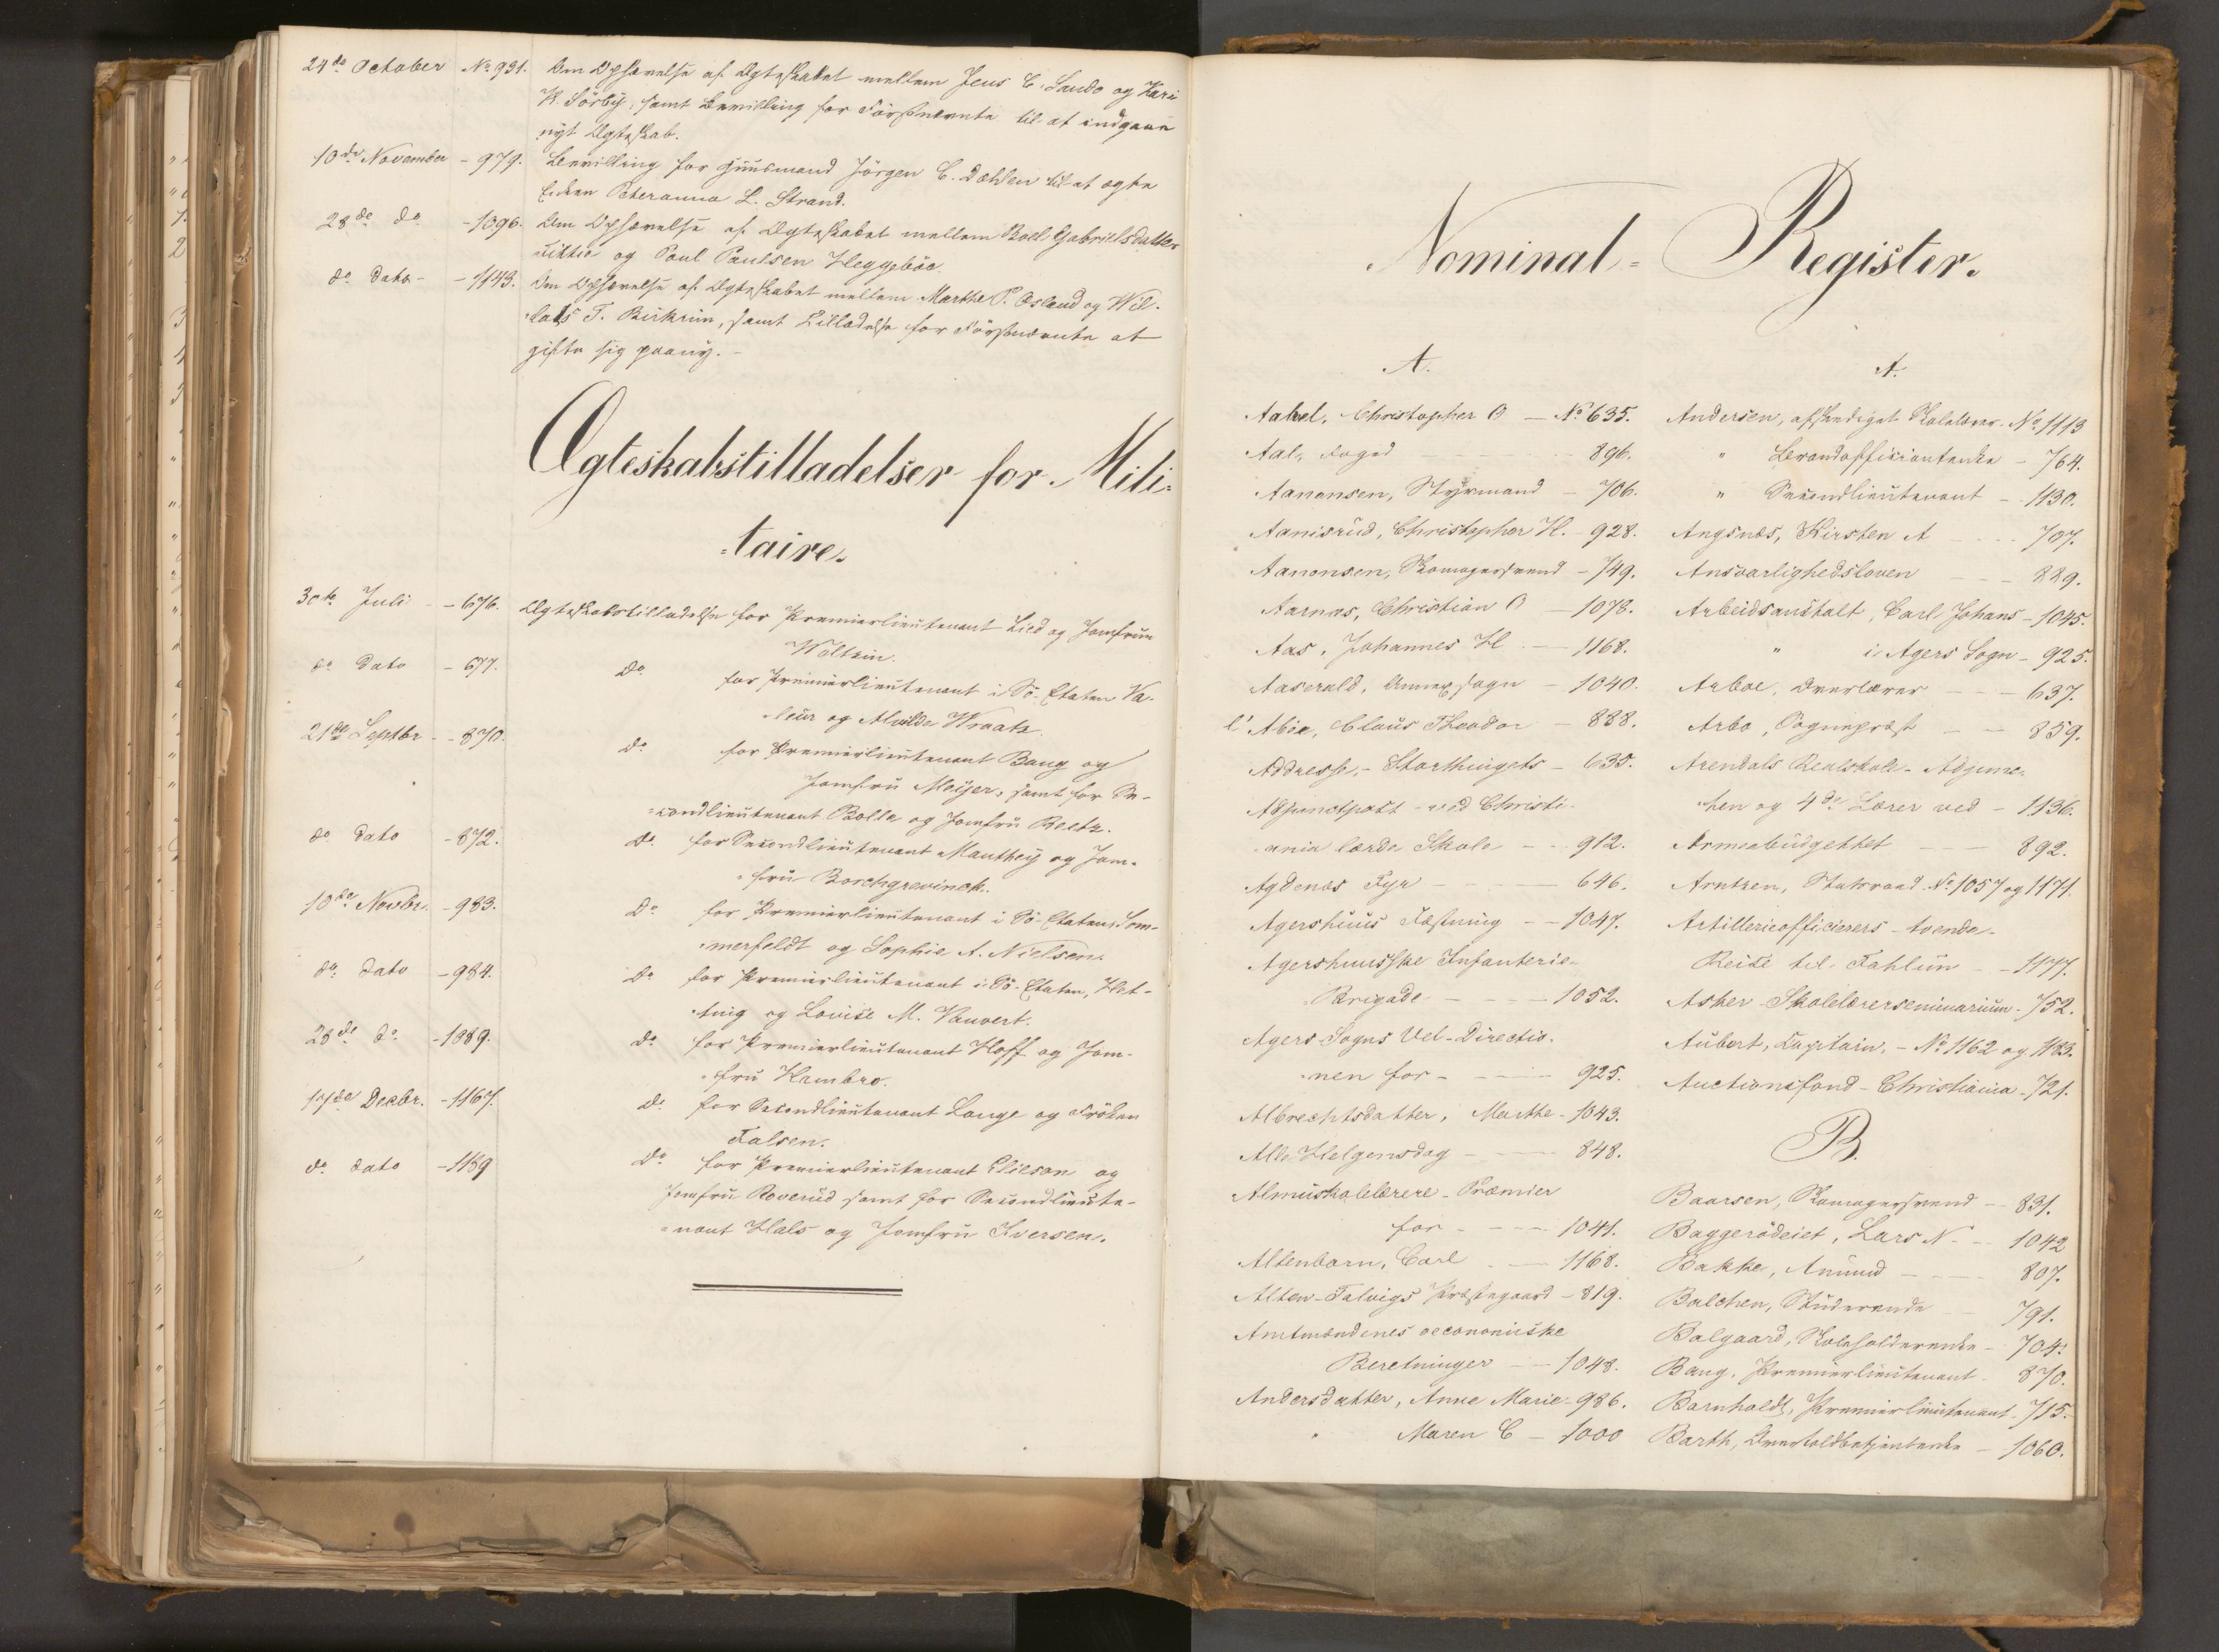 24de October No 931. Om Ophævelse af Ægteskabet mellem Jens C. Sando og Kari
K. Sörby, samt Bevilling for Förstnævnte til at indgaae
nyt Ægteskab.
10de November - 979. Bevilling for Huusmand Jörgen C. Dæhlen til at ægte
Enken Peteranna L. Strand.
28de do - 1096. Om Ophævelse af Ægteskabet mellem Boel Gabrielsdatter
og Poul Paulsen Heggeböe.
do dato - - 1143. Om Ophævelse af Ægteskabet mellem Marthe P. Osland og Wil-
T. Birkrim, samt Tilladelse for Förstnævnte at
gifte sig paany. -
Ægteskabstilladelser for Mili-
-taire.
30te Juli - - 676. Ægteskabstilladelse for Premierlieutenant Lied og Jomfru
Woltzin.
do dato - 677. do for Premierlieutenant i Sö-Etaten Va-
-leur og Alvilde Wraatz.
21de Septbr - - 870. do for Premierlieutenant Bang og
Jomfru Meijer, samt for Se-
-condlieutenant Bolle og Jomfru Beetz.
do dato - 872. do for Secondlieutenant Manthey og Jom-
-fru Borchgrevinck.
10de Novbr. - 983. do for Premierlieutenant i Sö-Etaten, Som-
-merfeldt og Sophie A. Nielsen.
do dato - 984. do for Premierlieutenant i Sö-Etaten, Het-
-ting og Lovise M. Vauvert.
28de do - 1089. do for Premierlieutenant Hoff og Jom-
-fru Hambro.
17de Decbr. - 1167. do for Secondlieutenant Lange og Fröken
Falsen.
do dato - 1189 do for Premierlieutenant Elieson og
Jomfru Roverud samt for Secondlieute-
-nant Hals og Jomfru Iversen.
Nominal-Register.
A.
Aabel, Christopher O - No 635.
Aal, Foged 896.
Aanonsen, Styrmand - 706.
Aanisrud, Christopher H. - 928.
Aanonsen, Skomagersvend - 749.
Aarnæs, Christian O - 1078.
Aas, Johannes H. - 1168.
Aaserald, Annexsogn - 1040.
l'Abée, Claus Theodor - 888.
Addresse, - Storthingets - 635.
Adjunctpost ved Christi-
-ania lærde Skole - - 912.
Agdenæs Fyr - - - 646.
Agershuus Fæstning - - 1047.
Agershuusske Infanterie-
-Brigade - - - 1052.
Agers-Sogns Vel-Directio-
-nen for - - - 925.
Albrechtsdatter, Marthe - 1043.
Alle Helgensdag - - - 848.
Almuskolelærere - Præmier
for - - - 1041.
Altenborn, Carl - - 1168.
Alten-Talvigs Præstegaard - 819.
Amtmændenes oeconomiske
Beretninger - - 1048.
Andersdatter, Anne Marie - 986.
" Maren C - 1000
A.
Andersen, afskediget Skolelærer - No 1113
" Brandofficiantenke - 764.
" Secondlieutenant - 1130.
Angsnæs, Kirsten A - - - 707.
Ansvarlighedsloven - - - 889.
Arbeidsanstalt, Carl Johans - 1045.
" i Agers Sogn - 925.
Arboe, Overlærer - - - 637.
Arbo, Sognepræst - - 859.
Arendals Realskole - Adjunc-
-ten og 4de Lærer ved - 1136.
Armeebudgettet - - - 892.
Arntzen, Statsraad - No 1057 og 1171.
Artillerieofficierers - tvende -
Reise til Fahlun - - 1177.
Asker-Skolelærerseminarium - 752.
Aubert, Capitain, - No 1162 og 1183.
Auctionsfond - Christiania - 721.
B.
Baarsen, Skomagersvend - - 831.
Baggerödeiet, Lars N. - - 1042
Bakke, Amund - - - 807.
Balchen, Studerende - - 791.
Balgaard, Skoleholderenke - 704.
Bang, Premierlieutenant - 870.
Barnholdt, Premierlieutenant - 715.
Barth, Overtoldbetjentenke - 1060.